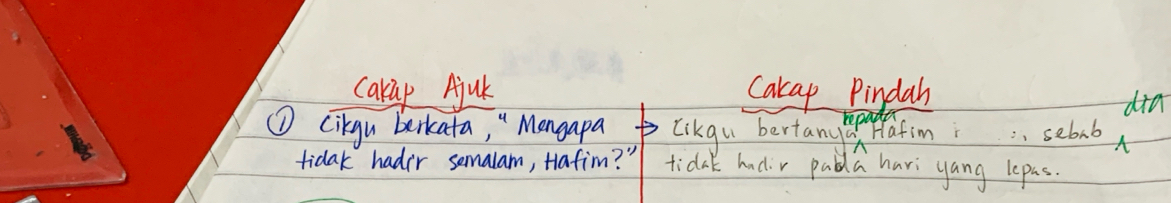 Cakap Ajuk
Cakap Pindah
① Cikgu berkata, "Mengapa
tidak hadir semalam, Hafim?"
→ Cikgu bertanya kepada Hafim sebab dia
tidak hadir pada hari yang lepas.